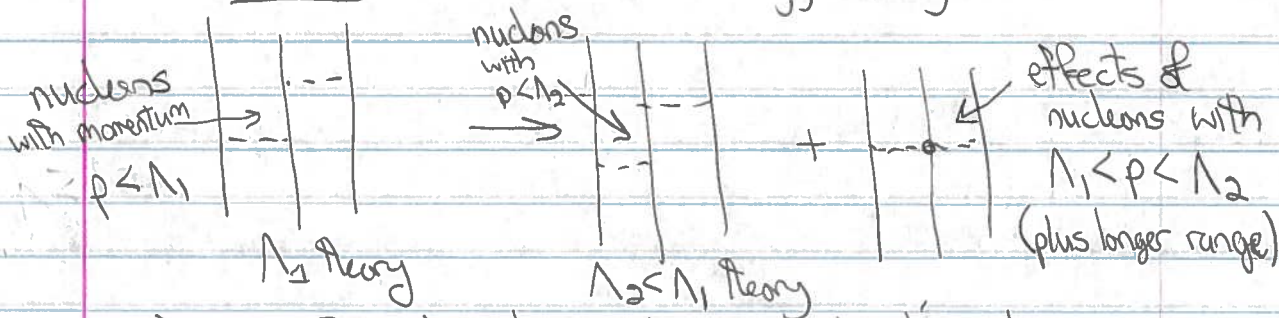 nucleons
with momentum
p < Λ₁
Λ₁ theory
nucleons
with
p < Λ₂
Λ₂ < Λ₁ theory
+
effects of
nucleons with
Λ₁ < p < Λ₂
(plus longer range)